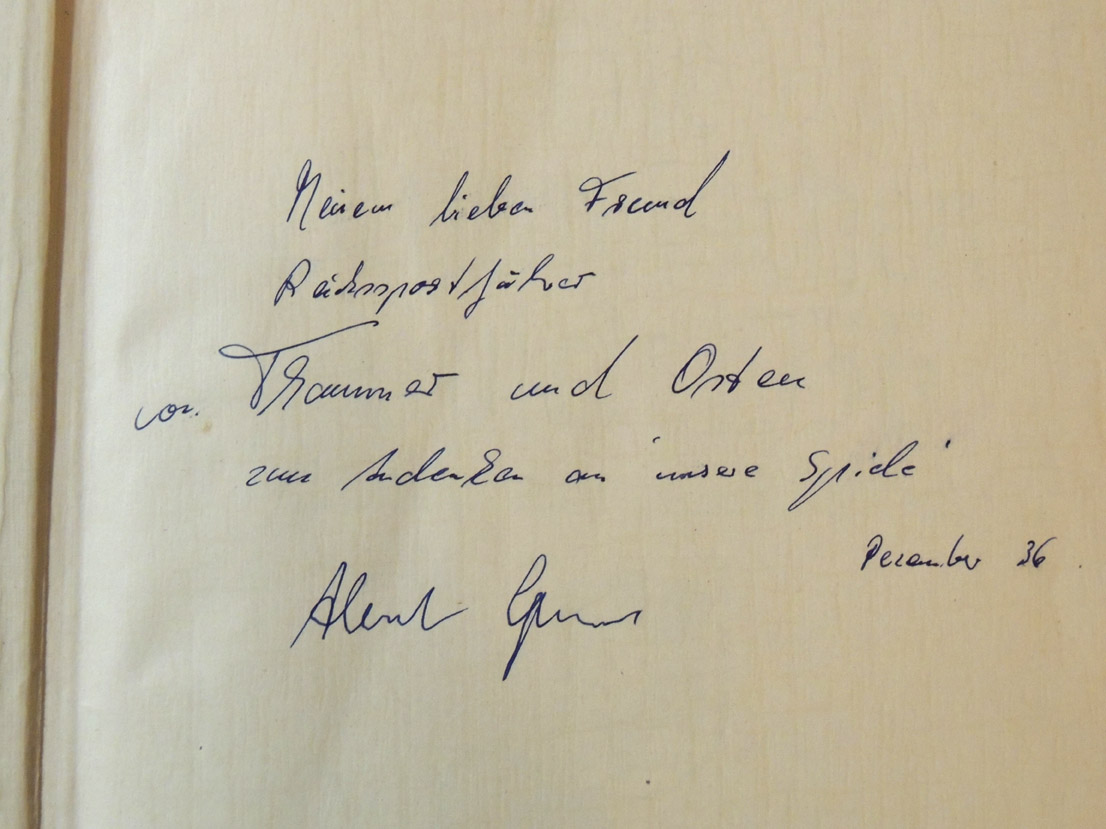 Meinem lieben Freund
Reichssportführer
von Tschammer und Osten
zum Andenken an 'unsere Spiele'
Dezember 36.